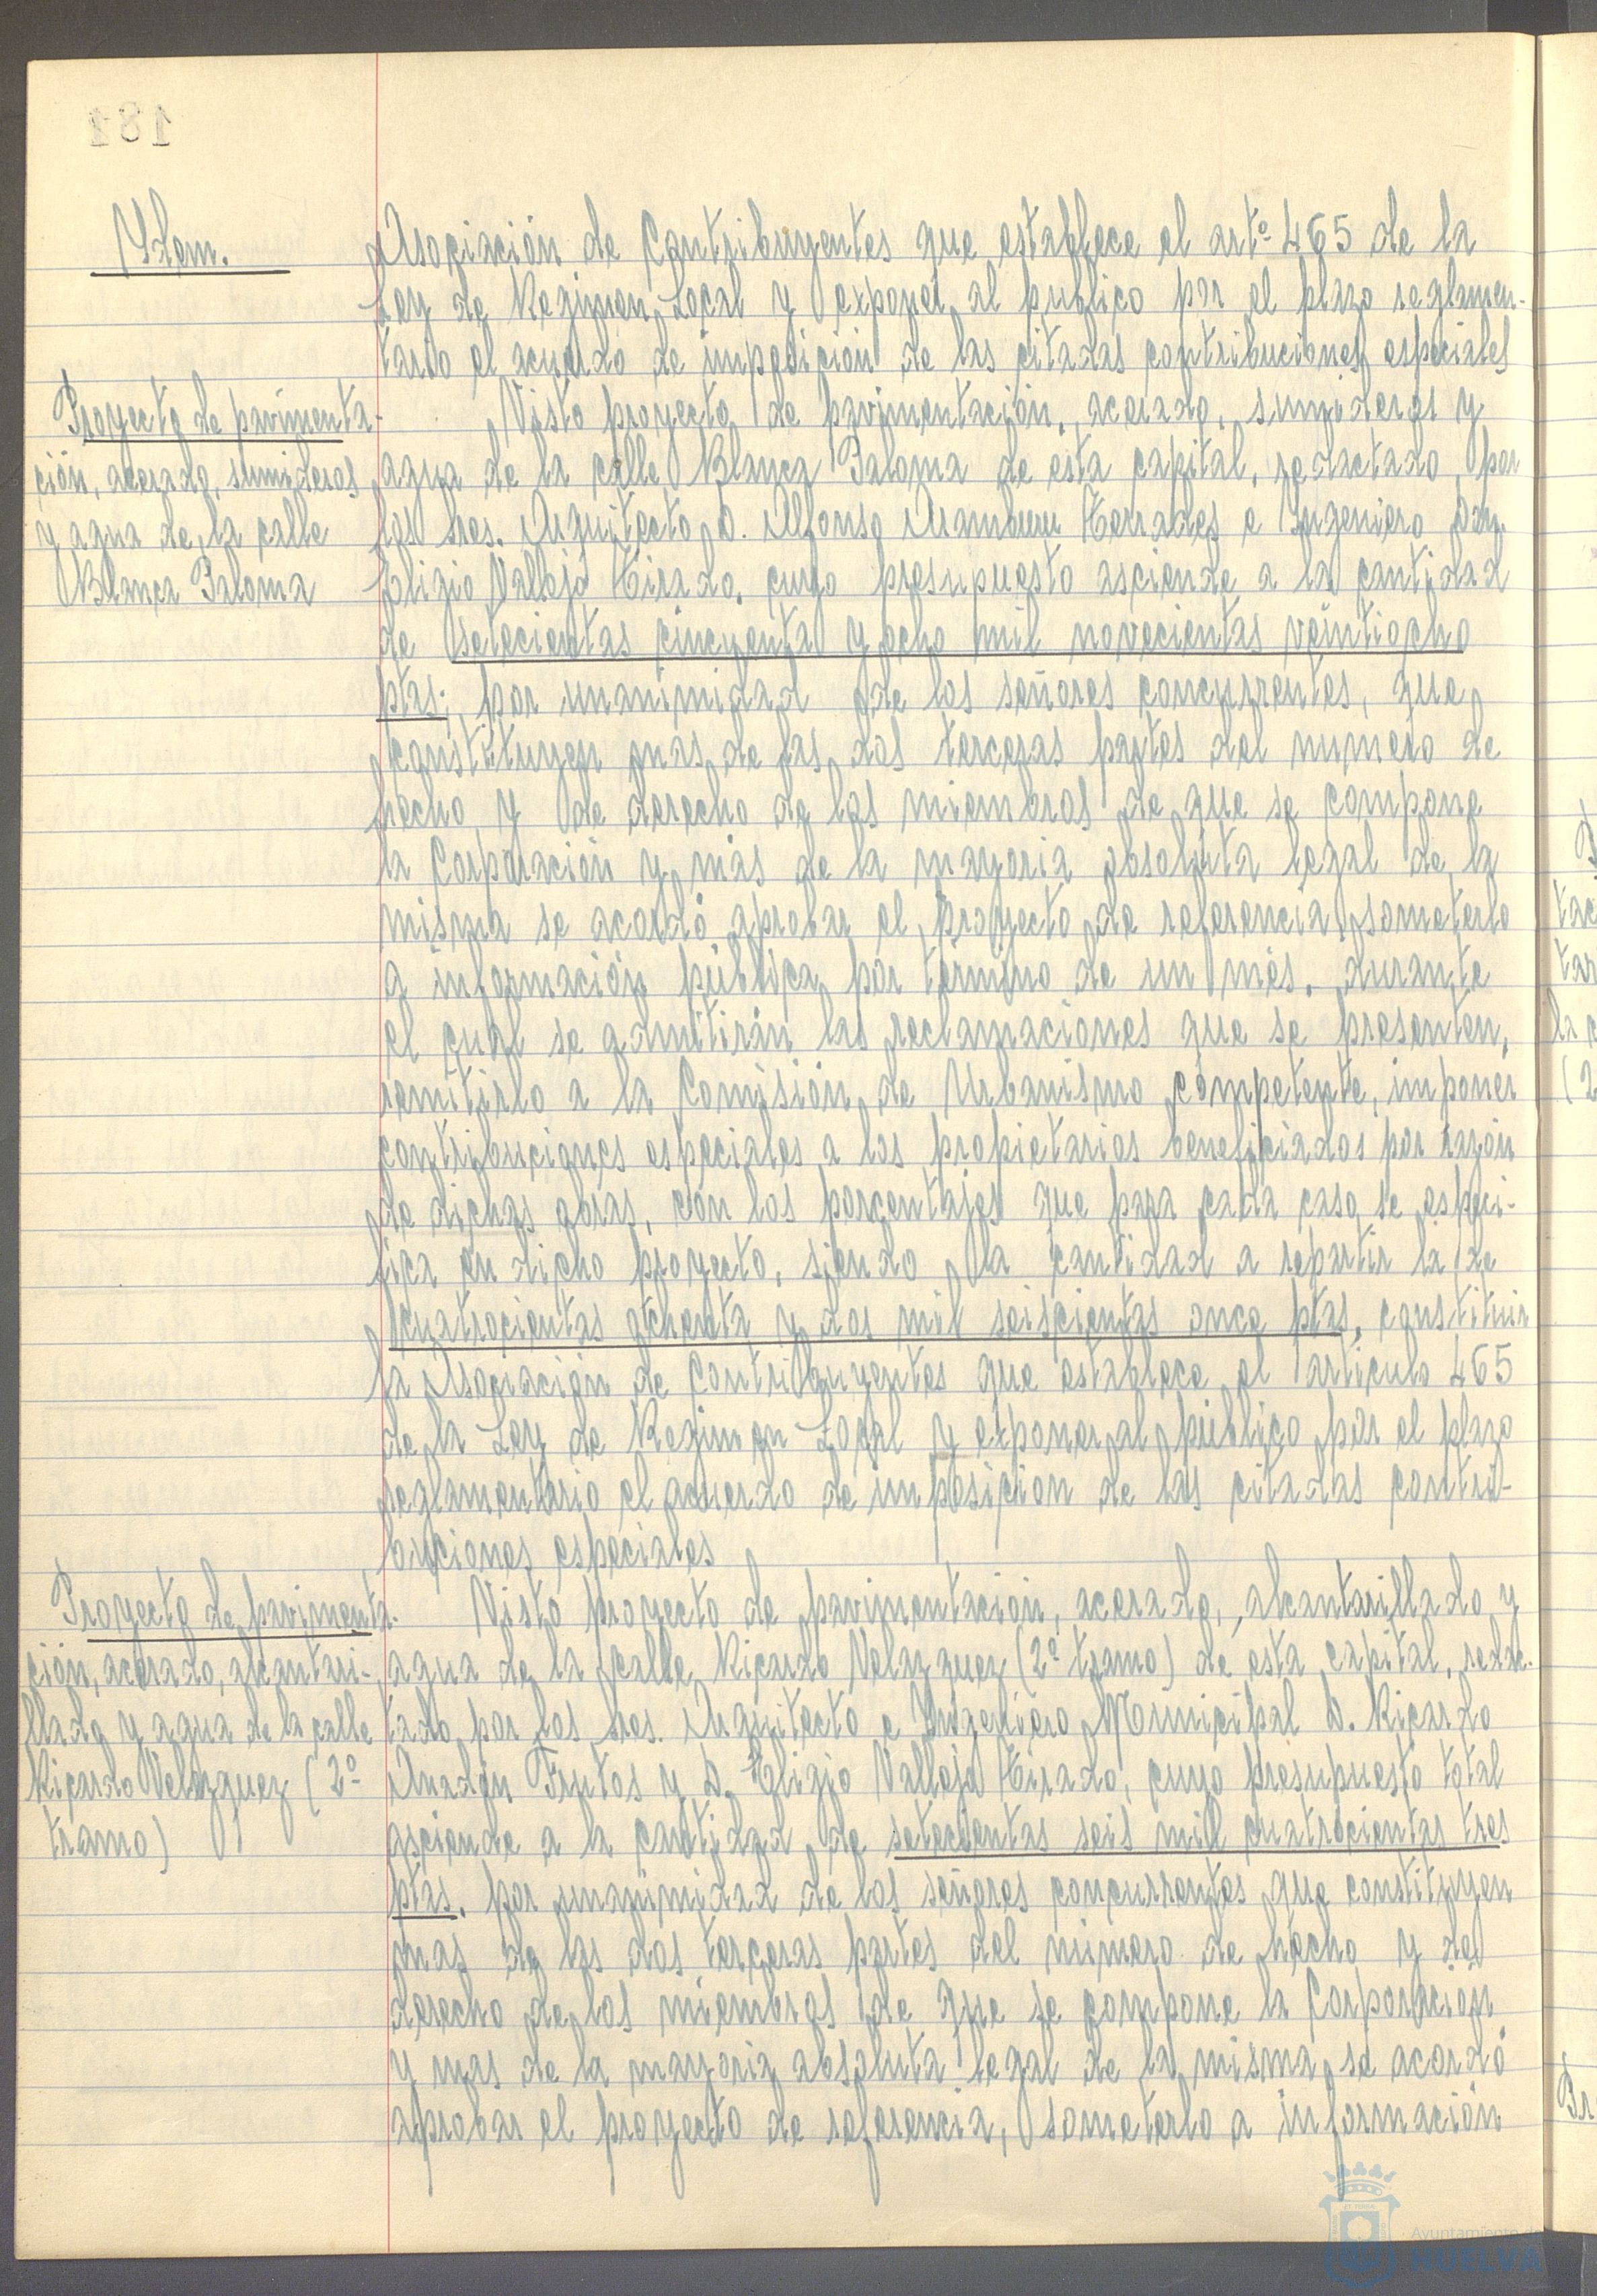 181
Ydem.
Asociación de Contribuyentes que establece el artº 465 de la
Ley de Regimen Local y exponer al publico por el plazo reglamen-
tario el acuerdo de imposición de las citadas contribuciones especiales
Proyecto de pavimenta-
ción, acerado, sumideros
y agua de la calle
Blanca Paloma
Visto proyecto de pavimentación, acerado, sumideros y
agua de la calle Blanca Paloma de esta capital, redactado por
los sres. Arquitecto D. Alfonso Aramburu Terrades e Ingeniero Don
Eligio Vallejo Tirado, cuyo presupuesto asciende a la cantidad
de setecientas cincuenta y ocho mil novecientas veintiocho
ptas; por unanimidad de los señores concurrentes, que
constituyen mas de las dos terceras partes del numero de
hecho y de derecho de los miembros de que se compone
la Corporación y más de la mayoria absoluta legal de la
misma se acordó aprobar el proyecto de referencia, someterlo
a información pública por término de un mes, durante
el cual se admitirán las reclamaciones que se presenten,
remitirlo a la Comisión de Urbanismo competente, imponer
contribuciones especiales a los propietarios beneficiados por razón
de dichas obras, con los porcentajes que para cada caso se especi-
fica en dicho proyecto, siendo la cantidad a repartir la de
cuatrocientas ochenta y dos mil seiscientas once ptas, constituir
la Asociación de Contribuyentes que establece el articulo 465
de la Ley de Regimen Local y exponer al público por el plazo
reglamentario el acuerdo de imposición de las citadas contri-
buciones especiales
Proyecto de pavimenta-
ción, acerado, alcantari-
llado y agua de la calle
Ricardo Velazquez (2º
tramo)
Visto proyecto de pavimentación, acerado, alcantarillado y
agua de la calle Ricardo Velazquez (2º tramo) de esta capital, redac-
tado por los sres. Arquitecto e Ingeniero Municipal D. Ricardo
Anadón Frutos y D. Eligio Vallejo Tirado, cuyo presupuesto total
asciende a la cantidad de setecientas seis mil cuatrocientas tres
ptas, por unanimidad de los señores concurrentes que constituyen
mas de las dos terceras partes del número de hecho y de
derecho de los miembros de que se compone la Corporación
y mas de la mayoria absoluta legal de la misma, se acordó
aprobar el proyecto de referencia, someterlo a información
Ayuntamiento de
HUELVA